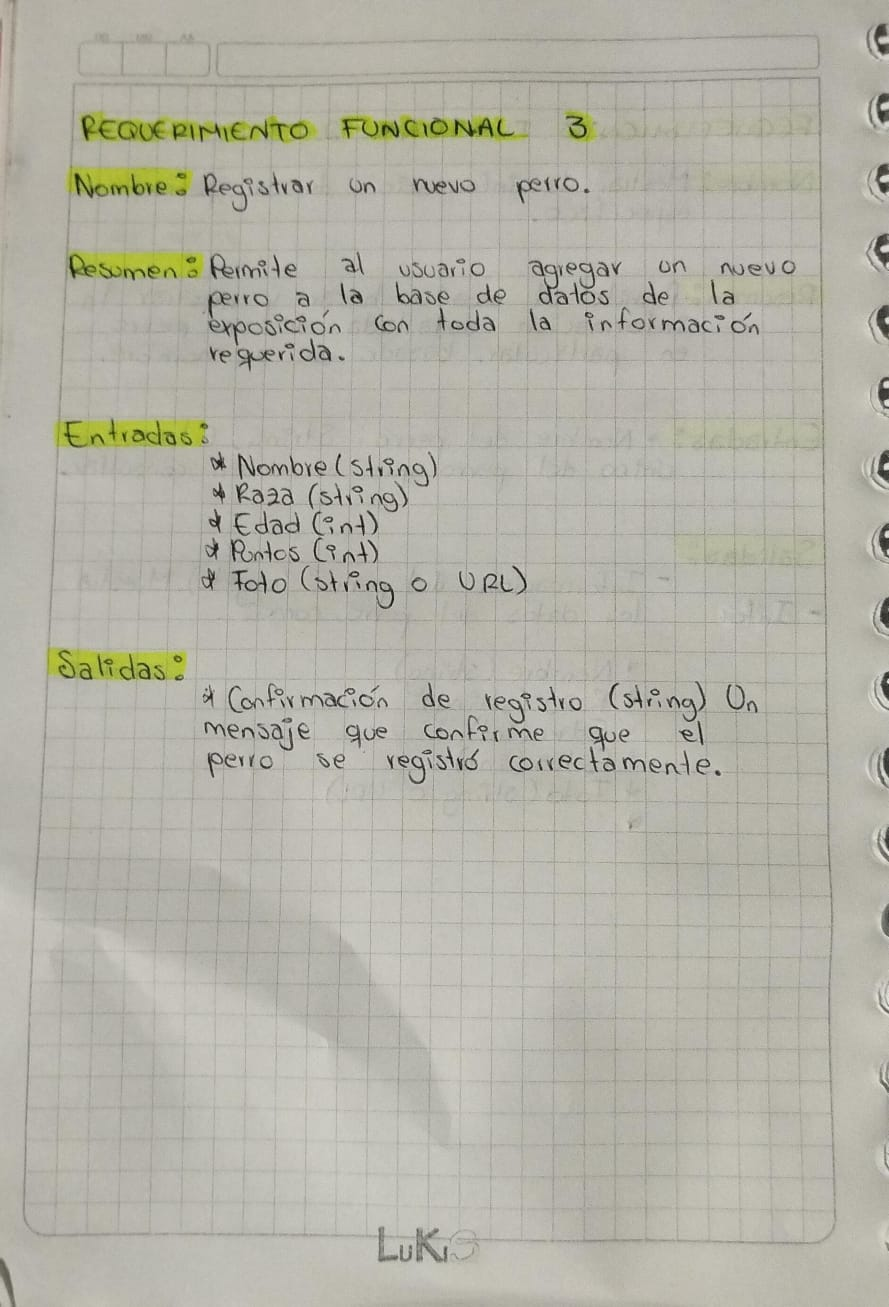 REQUERIMIENTO FUNCIONAL 3
Nombre: Registrar un nuevo perro.
Resumen: Permite al usuario agregar un nuevo
perro a la base de datos de la
exposición con toda la información
requerida.
Entradas:
* Nombre (string)
* Raza (string)
* Edad (int)
* Puntos (int)
* Foto (string o URL)
Salidas:
* Confirmación de registro (string) Un
mensaje que confirme que el
perro se registró correctamente.